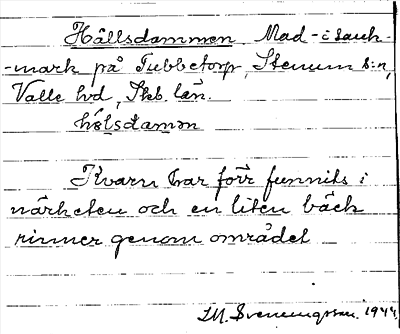 Hällsdammen Mad- i sank-
-mark på Tubbetorp, Stenum s:n,
Valle hd, Skb. län.
hǫlsdamǝn
Kvarn har förr funnits i
närheten och en liten bäck
rinner genom området
I.M. Sveningsson. 1944.